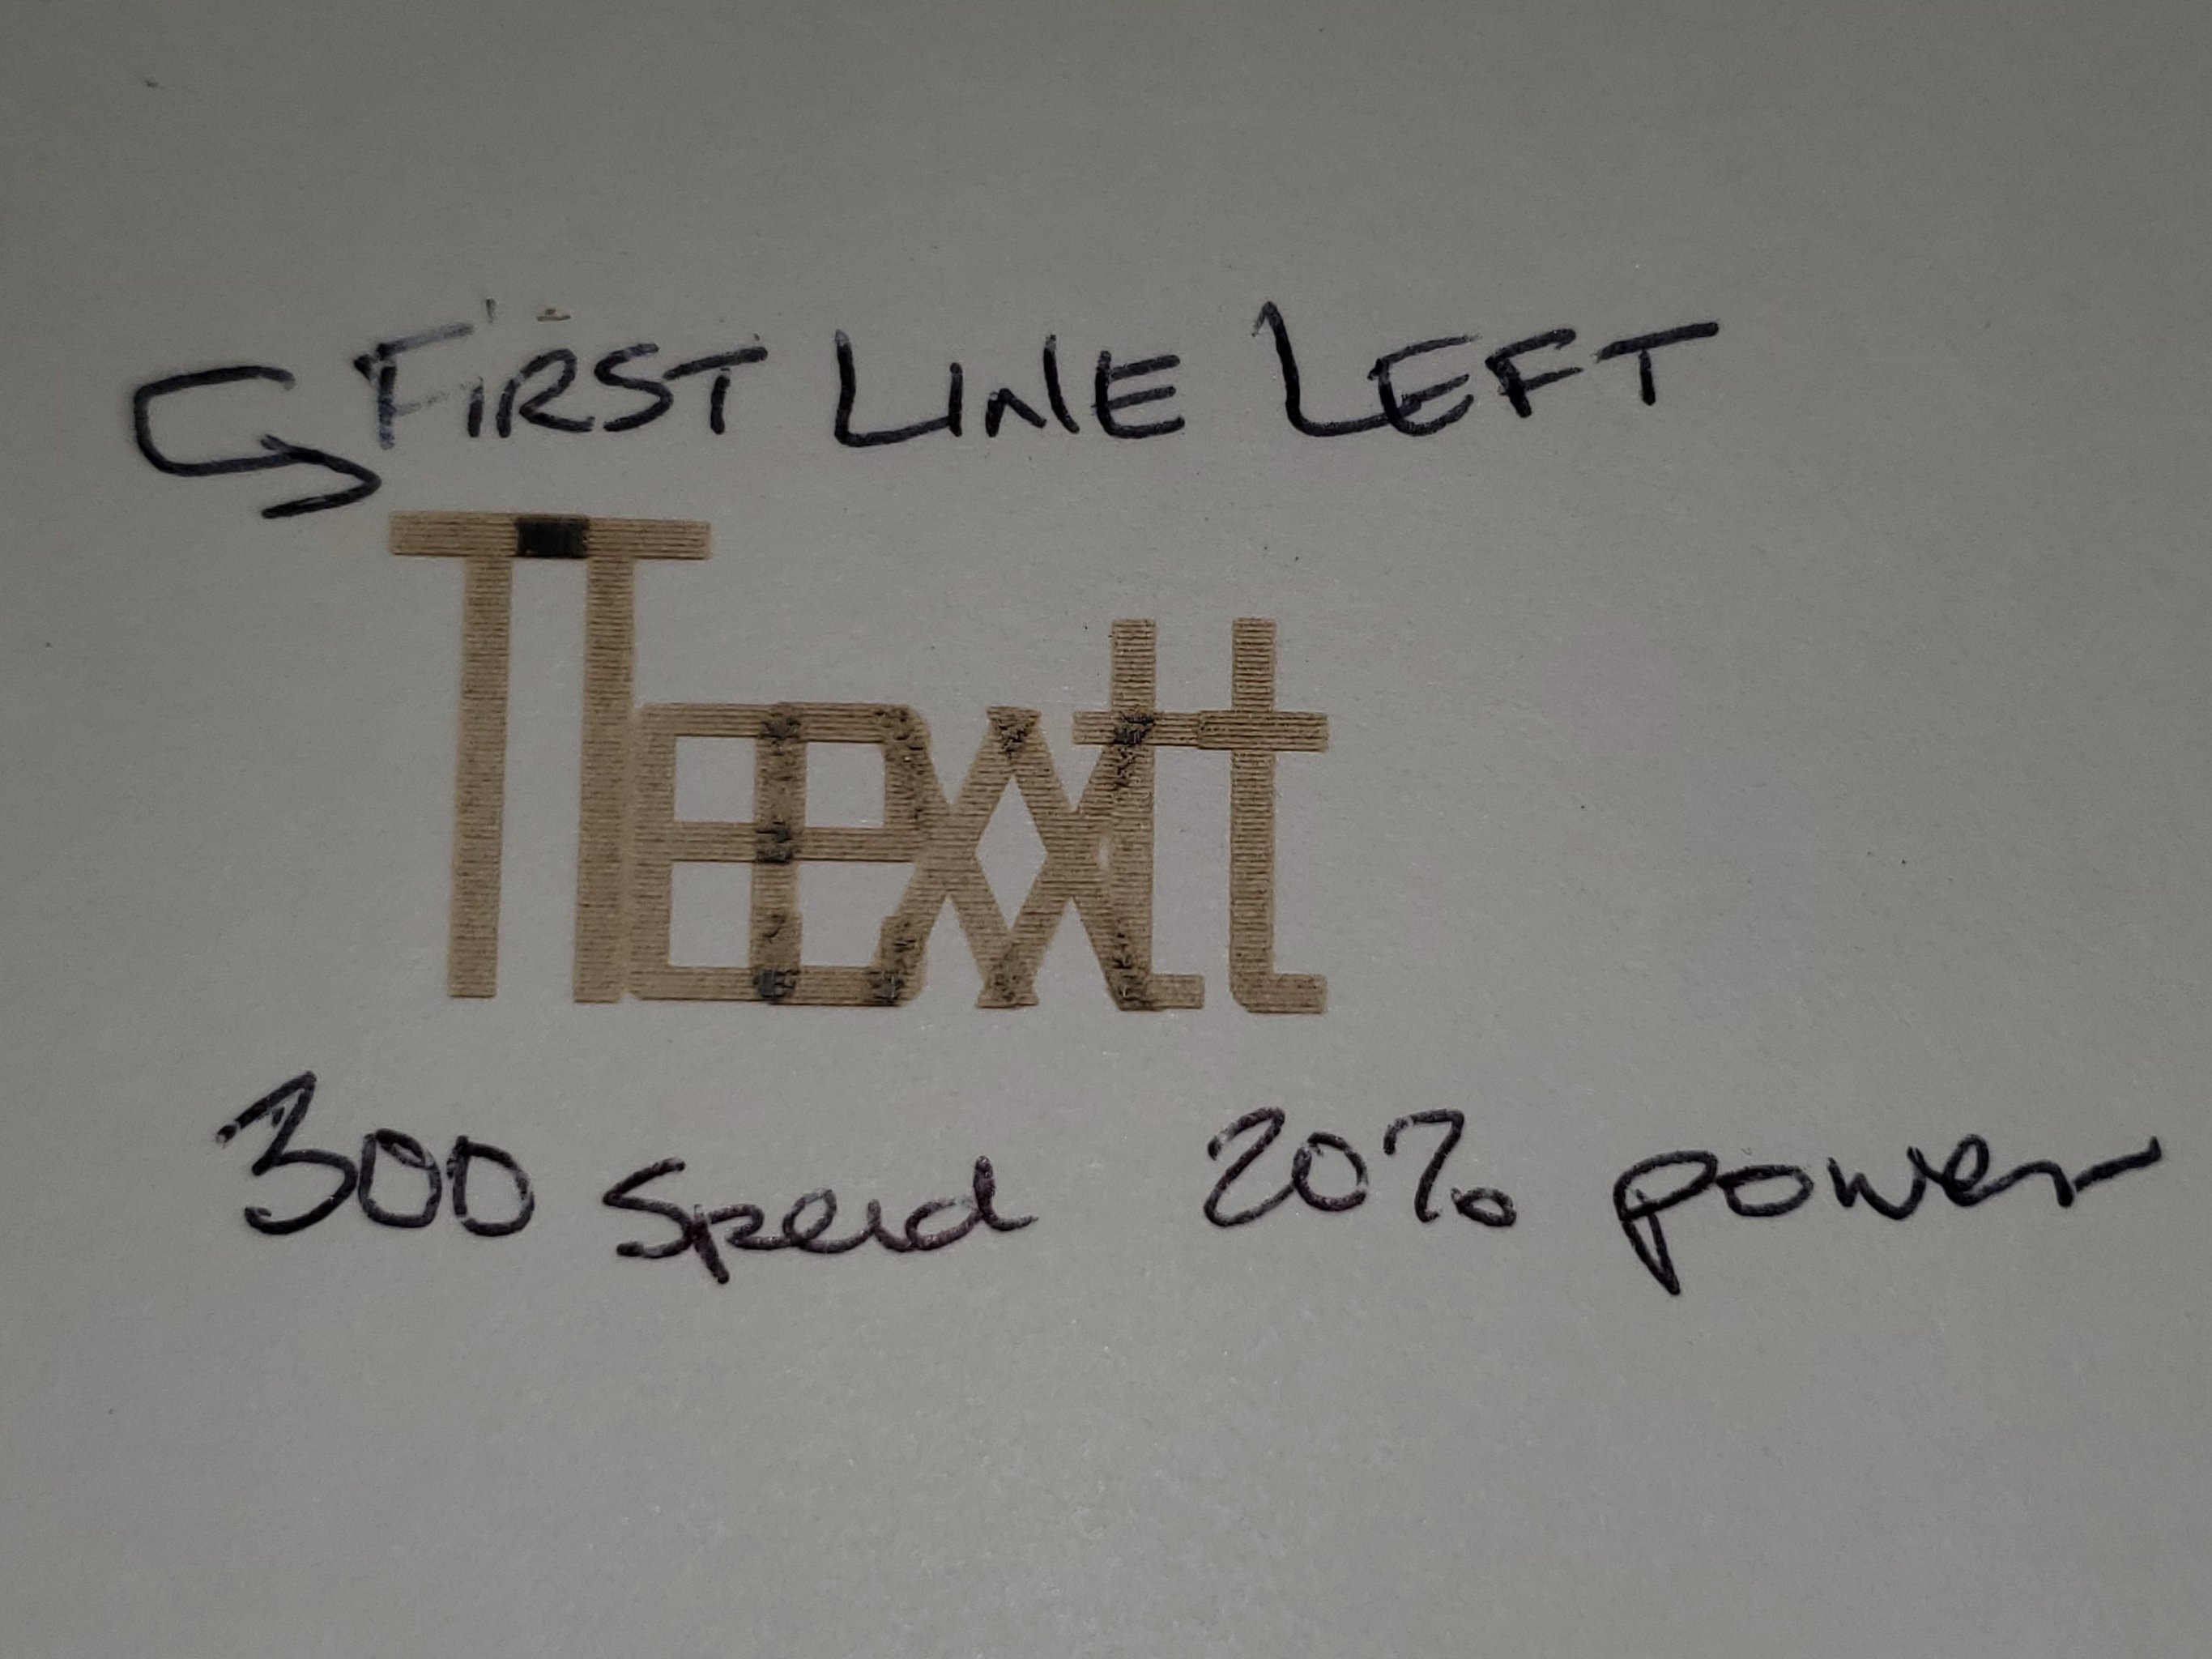 FIRST LINE LEFT
TTeexxtt
300 Speed 20% power